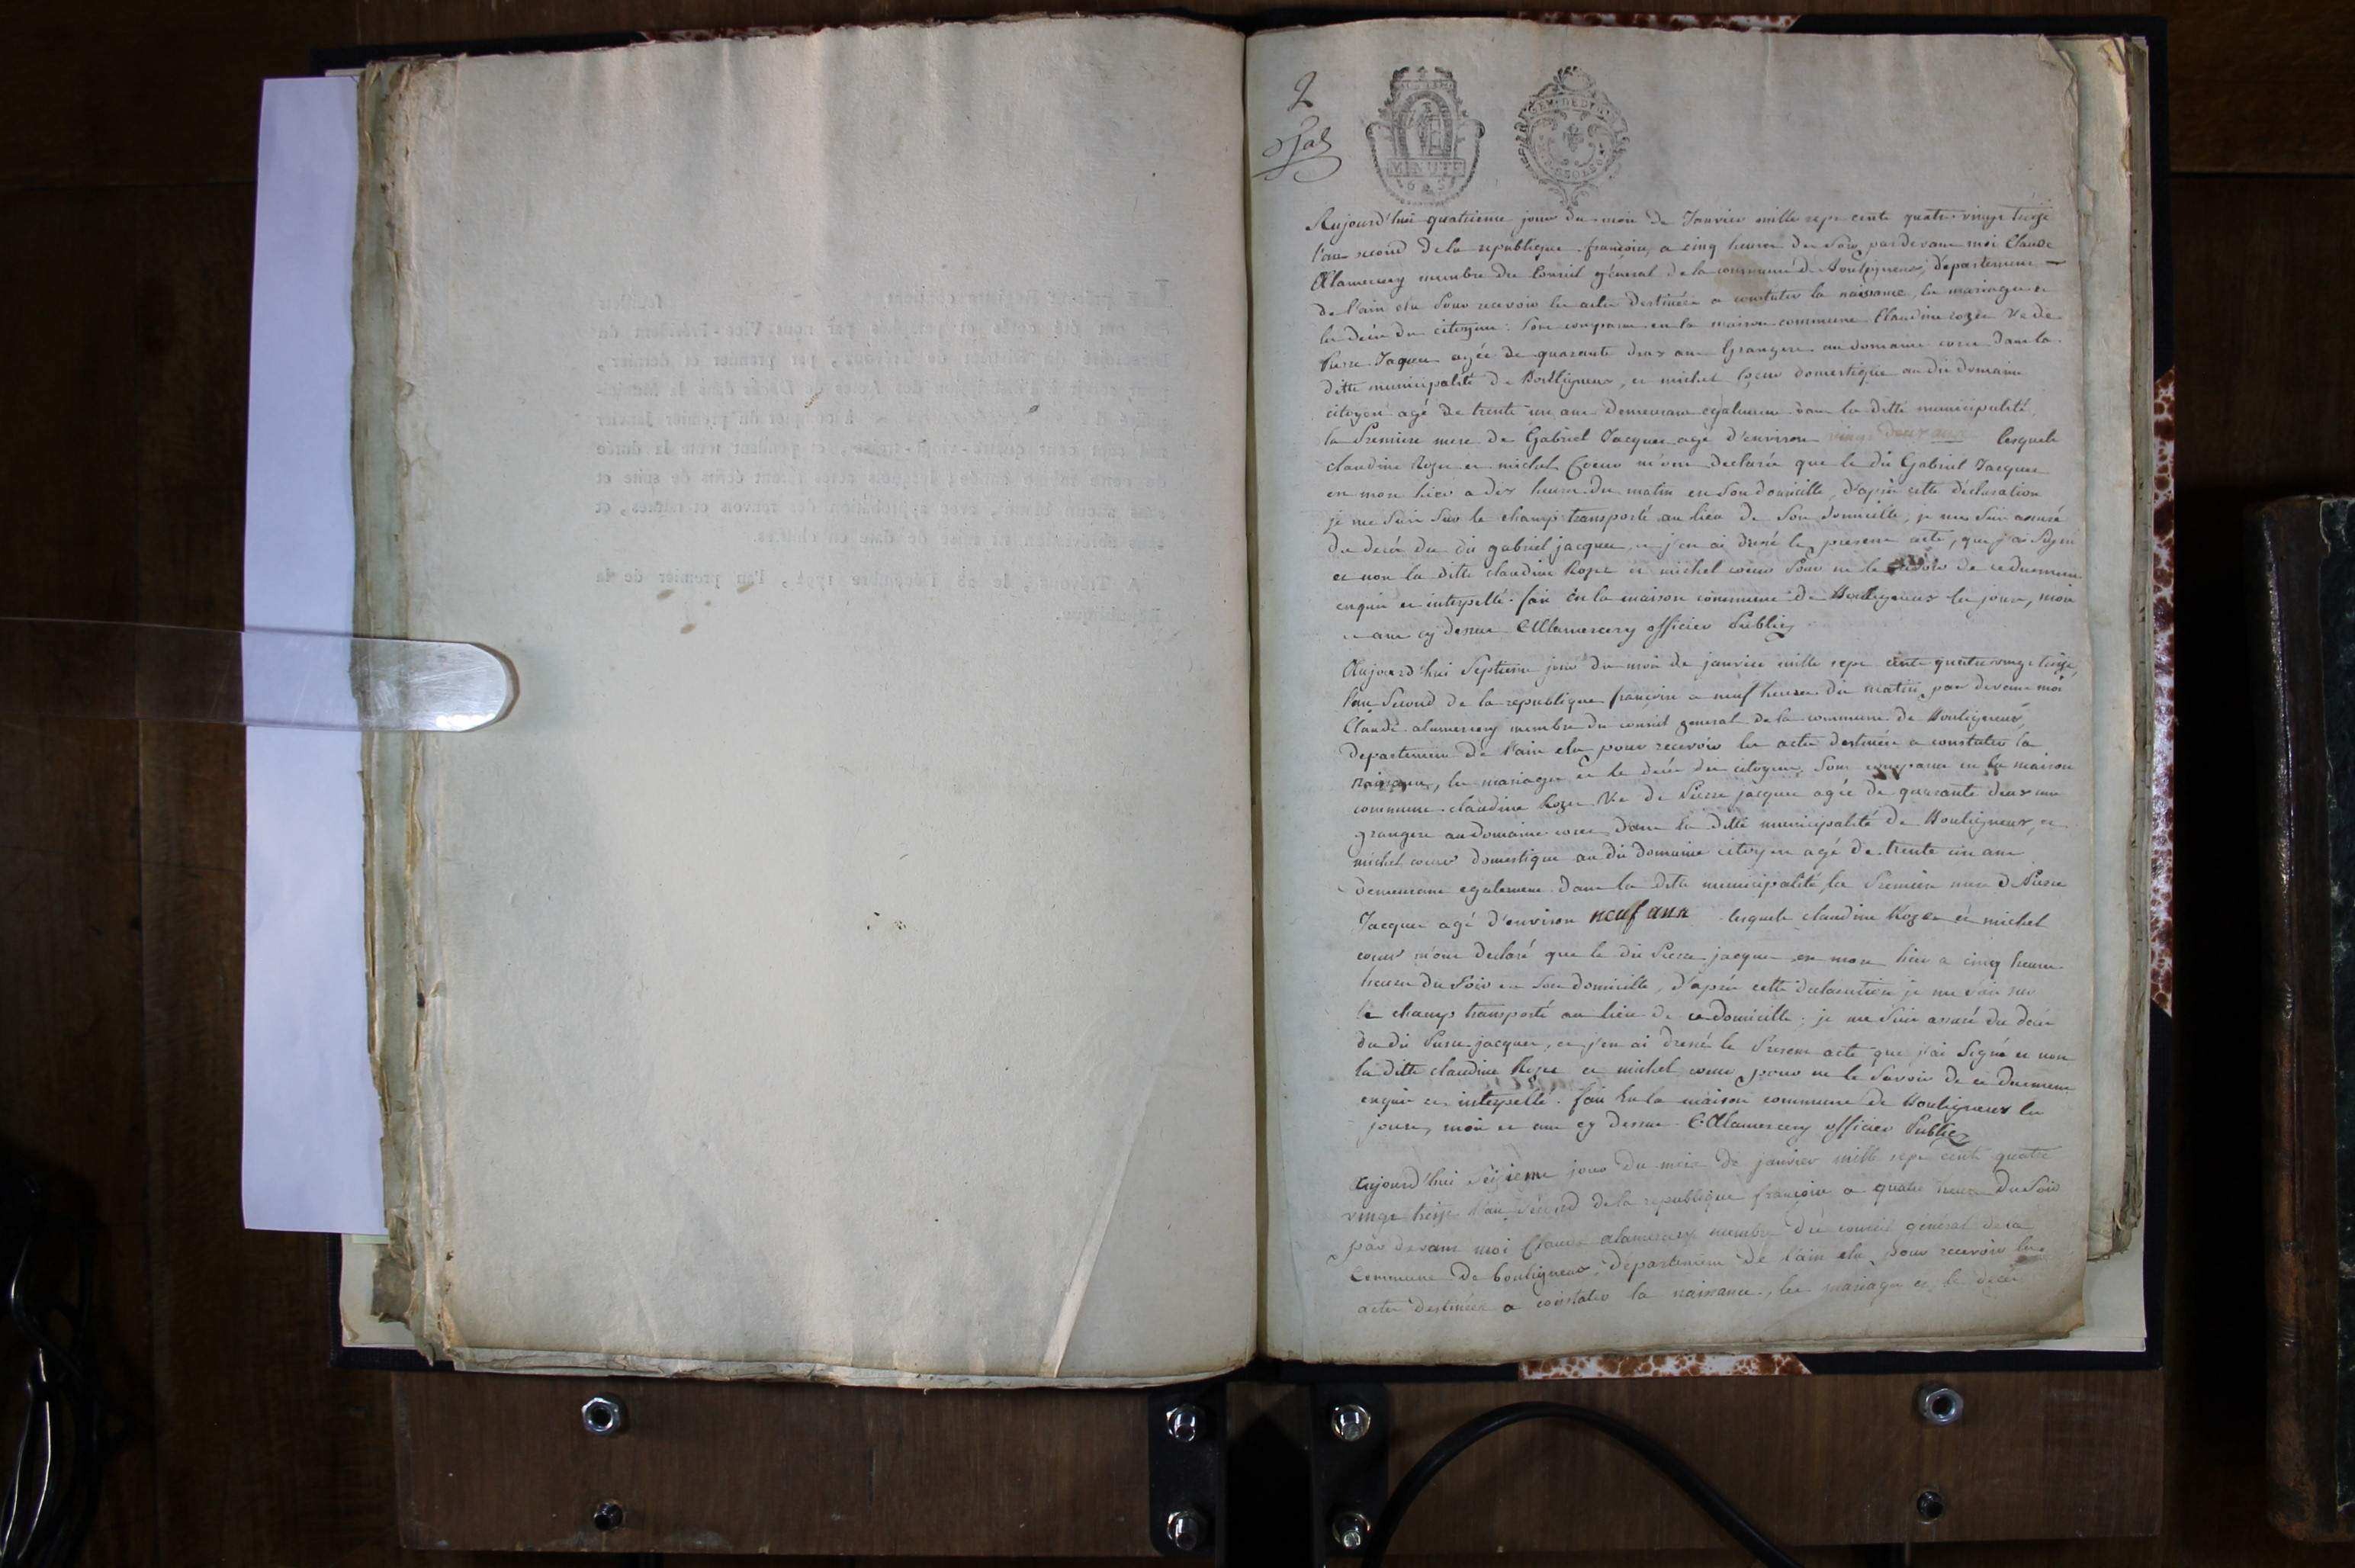 2
MINUTE
Aujourd'hui quatrieme jour du mois de Janvier mille sept cents quatre vingt treize
l'an second de la republique françoise, a cinq heures du soir, pardevant moi Claude
Alamercery membre du Conseil général de la commune de Bouligneux, departement
de l'ain élu pour recevoir les actes destinées a constater la naissance, les mariages et
les decès des citoyens. Sont comparus en la maison commune Claudine rozer Ve de
Pierre Jaques agée de quarante deux ans Grangere au domaine dans la
ditte municipalité de Bouligneux, et michel coeur domestique au dit domaine
citoyen agé de trente un ans demeurant egalement dans la ditte municipalité,
la Premiere mere de Gabriel Jacques agé d'environ vingt deux ans lesquels
claudine Rozer et michel Coeur m'ont declarés que le dit Gabriel Jacques
est mort hier a dix heures du matin en son domicille, d'après cette déclaration
je me suis sur le champ transporté au lieu de son domicille, je me suis assuré
du decès du dit gabriel jacques, et j'en ai dressé le present acte, que j'ai signé
et non la ditte claudine Rozer et michel coeur pour ne le savoir de ce duement
enquis et interpellé. fait en la maison commune de Bouligneux les jours, mois
et ans cy dessus CAlamercery officier Public
Aujourd'hui Septieme jour du mois de janvier mille sept cents quatre vingt treize,
l'an Second de la republique françoise a neuf heures du matin, par devant moi
Claude alamercery membre du conseil general de la commune de Bouligneux,
departement de l'ain elu pour recevoir les actes destinées a constater la
naissance, les mariages et le decès des citoyens, Sont comparus en la maison
commune claudine Rozer Ve de Pierre jacques agée de quarante deux ans
grangere au domaine dans la ditte municipalité de Bouligneux, et
michel coeur domestique au dit domaine citoyen agé de trente un ans
demeurant egalement dans la ditte municipalité, la Premiere mere de Pierre
Jacques agé d'environ neuf ans lesquels claudine Rozer et michel
coeur m'ont declaré que le dit Pierre jacques est mort hier a cinq heures
heures du soir en son domicille, d'après cette declaration je me suis sur
le champ transporté au lieu de ce domicille; je me suis assuré du decès
du dit Pierre jacques, et j'en ai dressé le Present acte que j'ai signé et non
la ditte claudine Rozer et michel coeur pour ne le Savoir de ce duement
enquis et interpellé. fait En la maison commune de Bouligneux les
jours, mois et ans cy dessus CAlamercery officier Public
Aujourd'hui Seizieme jour du mois de janvier mille sept cents quatre
vingt treize l'an Second de la republique françoise a quatre heures du Soir
par devant moi Claude alamercery membre du conseil général de la
Commune de bouligneux, departement de l'ain elu pour recevoir les
actes destinées a constater la naissance, les mariages et le decès